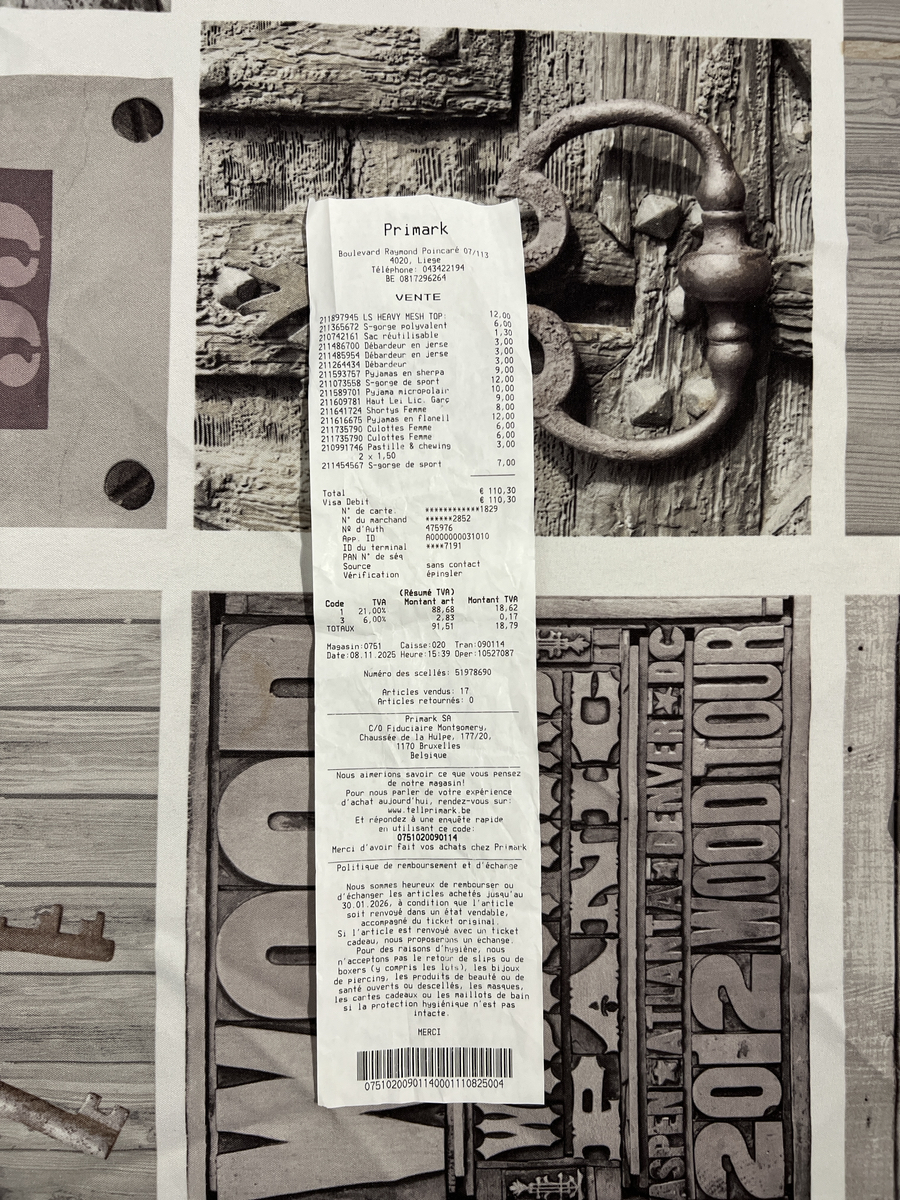 Primark
Boulevard Raymond Poincaré 07/113
4020, Liege
Téléphone: 043422194
BE 0817296264
VENTE
211897945 LS HEAVY MESH TOP: 12,00
211365672 S-gorge polyvalent 6,00
210742161 Sac réutilisable 1,30
211486700 Débardeur en jerse 3,00
211485954 Débardeur en jerse 3,00
211264434 Débardeur 3,00
211593757 Pyjamas en sherpa 9,00
211073558 S-gorge de sport 12,00
211589701 Pyjama micropolair 10,00
211609781 Haut Lei Lic. Garç 9,00
211641724 Shortys Femme 8,00
211616675 Pyjamas en flanell 12,00
211735790 Culottes Femme 6,00
211735790 Culottes Femme 6,00
210991746 Pastille & chewing 3,00
2 x 1,50
211454567 S-gorge de sport 7,00
Total € 110,30
Visa Debit € 110,30
N° de carte. ************1829
N° du marchand ******2852
Nº d'Auth 475976
App. ID A0000000031010
ID du terminal ****7191
PAN N° de séq
Source sans contact
Vérification épingler
(Résumé TVA)
Code TVA Montant art Montant TVA
1 21,00% 88,68 18,62
3 6,00% 2,83 0,17
TOTAUX 91,51 18,79
Magasin:0751 Caisse:020 Tran:090114
Date:08.11.2025 Heure:15:39 Oper:10527087
Numéro des scellés: 51978690
Articles vendus: 17
Articles retournés: 0
Primark SA
C/O Fiduciaire Montgomery,
Chaussée de la Hulpe, 177/20,
1170 Bruxelles
Belgique
Nous aimerions savoir ce que vous pensez
de notre magasin!
Pour nous parler de votre expérience
d'achat aujourd'hui, rendez-vous sur:
www.tellprimark.be
Et répondez à une enquête rapide
en utilisant ce code:
0751020090114
Merci d'avoir fait vos achats chez Primark
Politique de remboursement et d'échange
Nous sommes heureux de rembourser ou
d'échanger les articles achetés jusqu'au
30.01.2026, à condition que l'article
soit renvoyé dans un état vendable,
accompagné du ticket original.
Si l'article est renvoyé avec un ticket
cadeau, nous proposerons un échange.
Pour des raisons d'hygiène, nous
n'acceptons pas le retour de slips ou de
boxers (y compris les lots), les bijoux
de piercing, les produits de beauté ou de
santé ouverts ou descellés, les masques,
les cartes cadeaux ou les maillots de bain
si la protection hygiénique n'est pas
intacte.
MERCI
07510200901140001110825004
WOOD
ASPEN ATLANTA DENVER DC
2012 WOOD TOUR